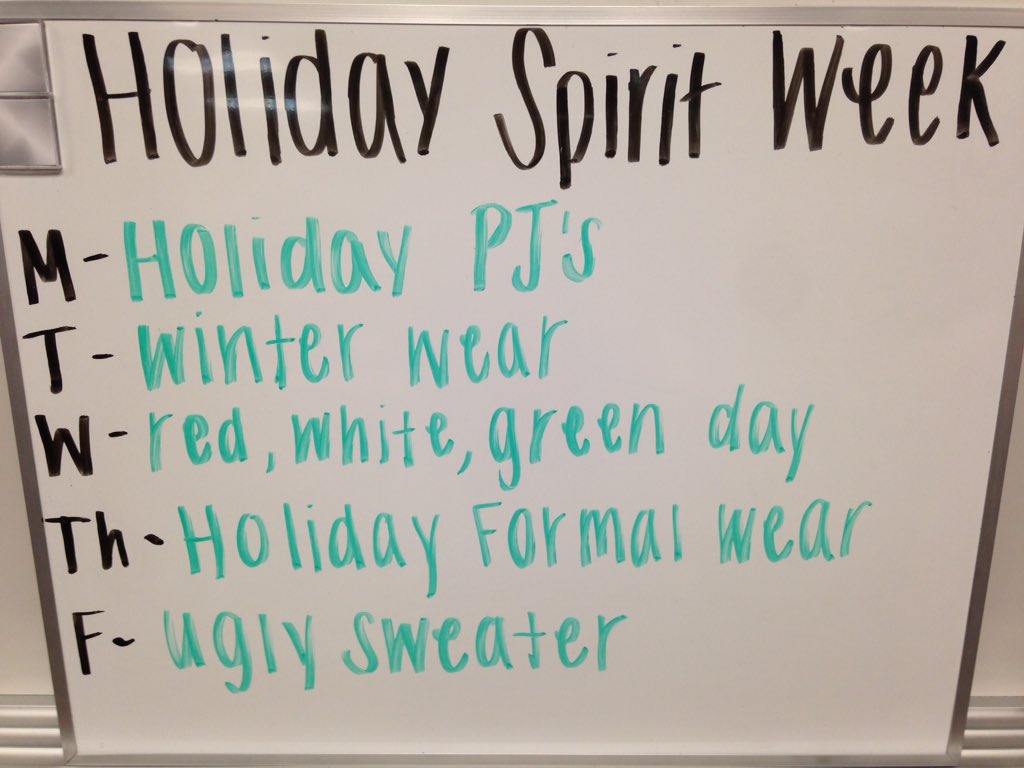 Holiday Spirit Week
M- Holiday PJ's
T- winter wear
W- red, white, green day
Th- Holiday Formal wear
F- ugly sweater